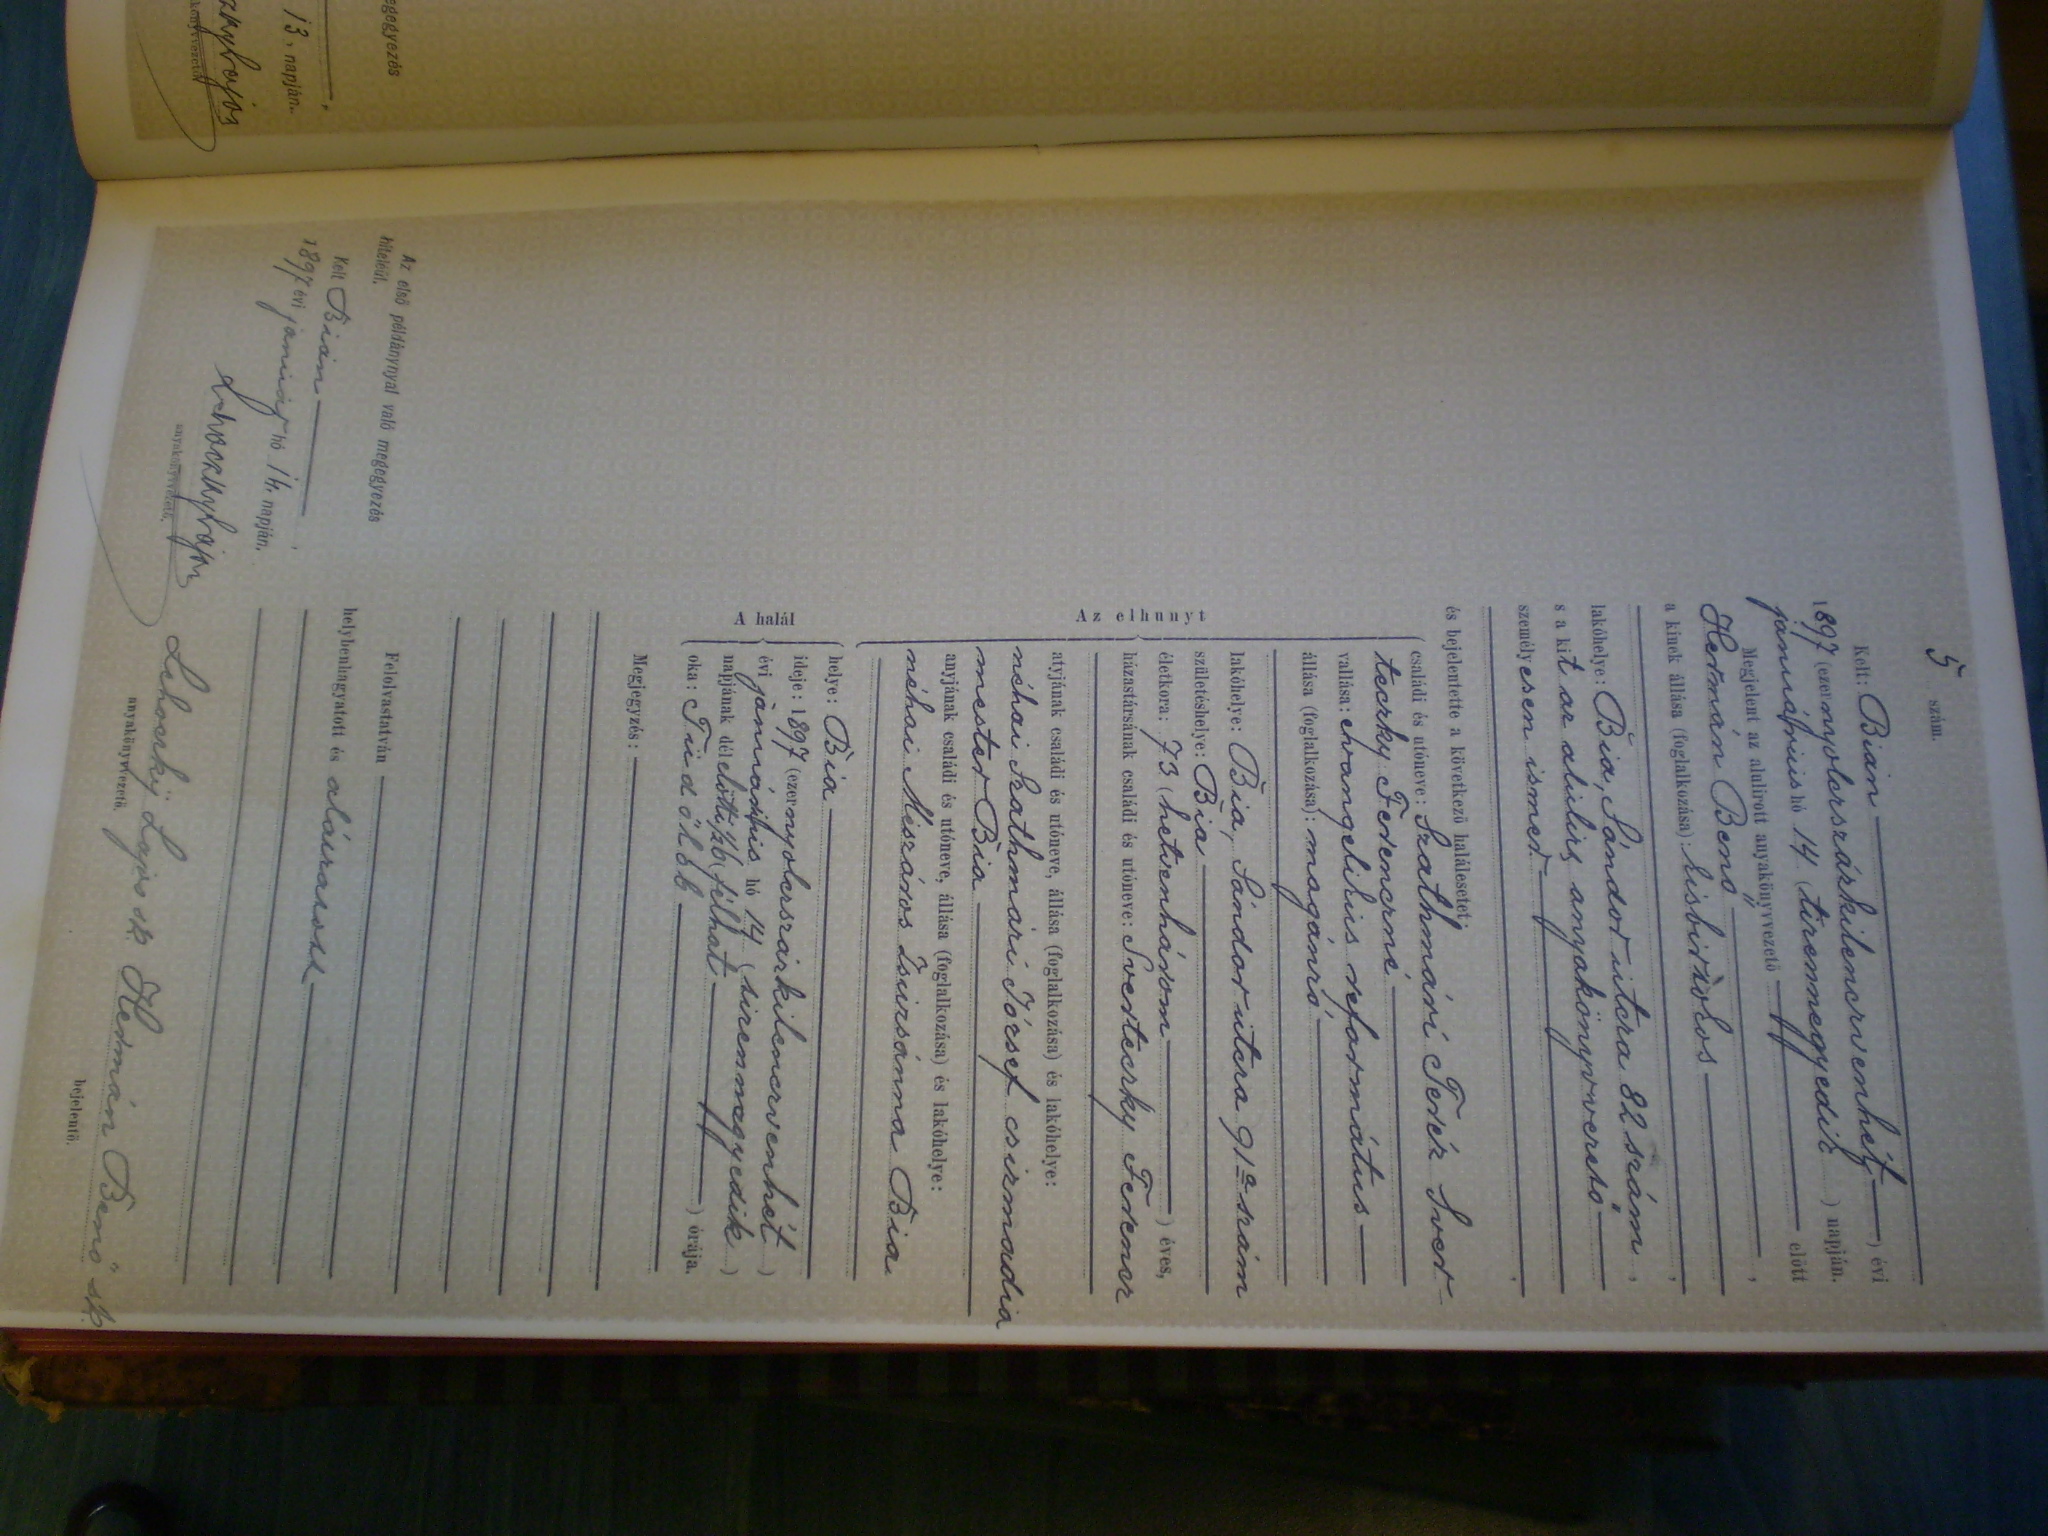 egegyezés
13. napján.
5 szám.
Kelt: Bián évi
1897 (ezernyolcszázkilencvenhét) évi
januárius hó 14 (tizennegyedik) napján.
Megjelent az alulirott anyakönyvvezető előtt
Hermán Benő,
a kinek állása (foglalkozása): kisbirtokos,
lakóhelye: Bia, Sándor utcza 82 szám,
s a kit az alulirt anyakönyvvezető
személyesen ismer.
és bejelentette a következő halálesetet:
Az elhunyt
családi és utóneve: Szathmári Teréz Svert-
teczky Ferenczné
vallása: evangelikus református
állása (foglalkozása): magánzó
lakóhelye: Bia, Sándor utcza 91 szám
születéshelye: Bia
életkora: 73 (hetvenhárom) éves,
házastársának családi és utóneve: Sverteczky Ferencz
atyjának családi és utóneve, állása (foglalkozása) és lakóhelye:
néhai Szathmári József csizmadia
mester Bia
anyjának családi és utóneve, állása (foglalkozása) és lakóhelye:
néhai Mészáros Zsuzsánna Bia.
A halál
helye: Bia
ideje: 1897 (ezernyolcszázkilencvenhét)
évi januárius hó 14 (tizennegyedik)
napjának délelőtti ½6 (félhat) órája.
oka: Tüdőlob
Megjegyzés:
Felolvastatván
helybenhagyatott és aláiratott
Lehoczky Lajos sk. Hermán Benő sk.
anyakönyvvezető. bejelentő.
Az első példánynyal való megegyezés
hiteléül.
Kelt Bián,
1897 évi január hó 14. napján.
Lehoczky Lajos
anyakönyvvezető.